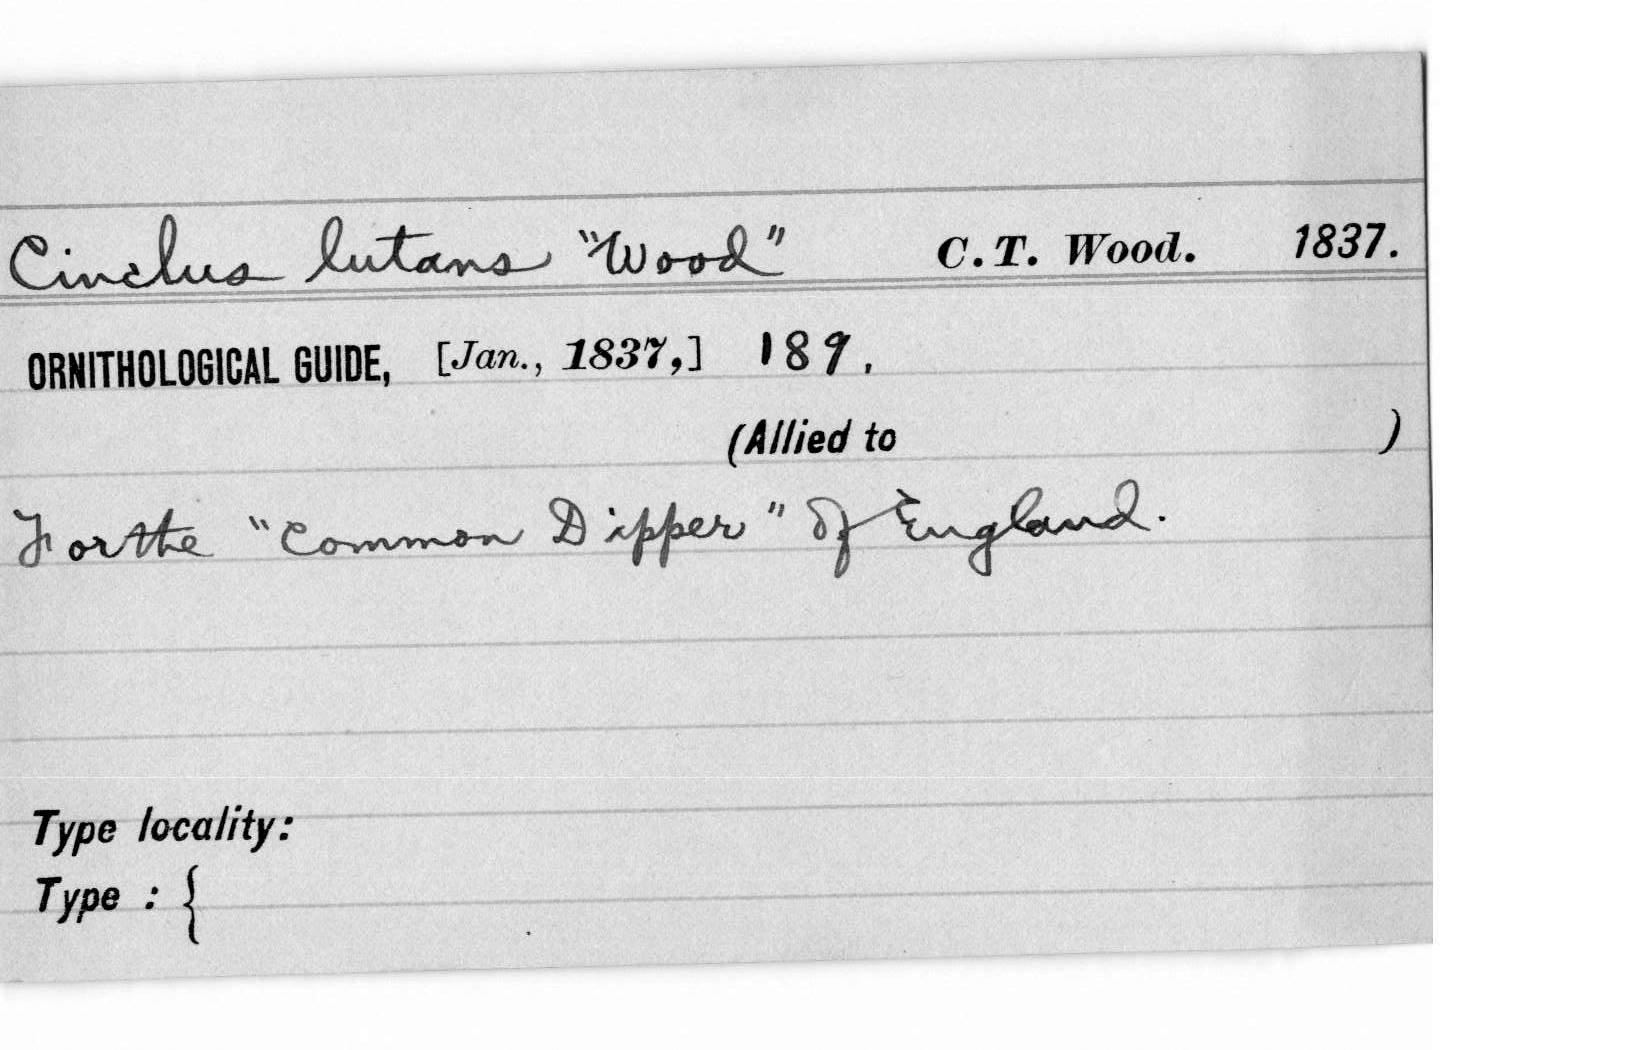 Cinclus lutans "Wood" C.T. Wood. 1837.
ORNITHOLOGICAL GUIDE, [Jan., 1837,] 189.
(Allied to )
For the "Common Dipper" of England.
Type locality:
Type : {